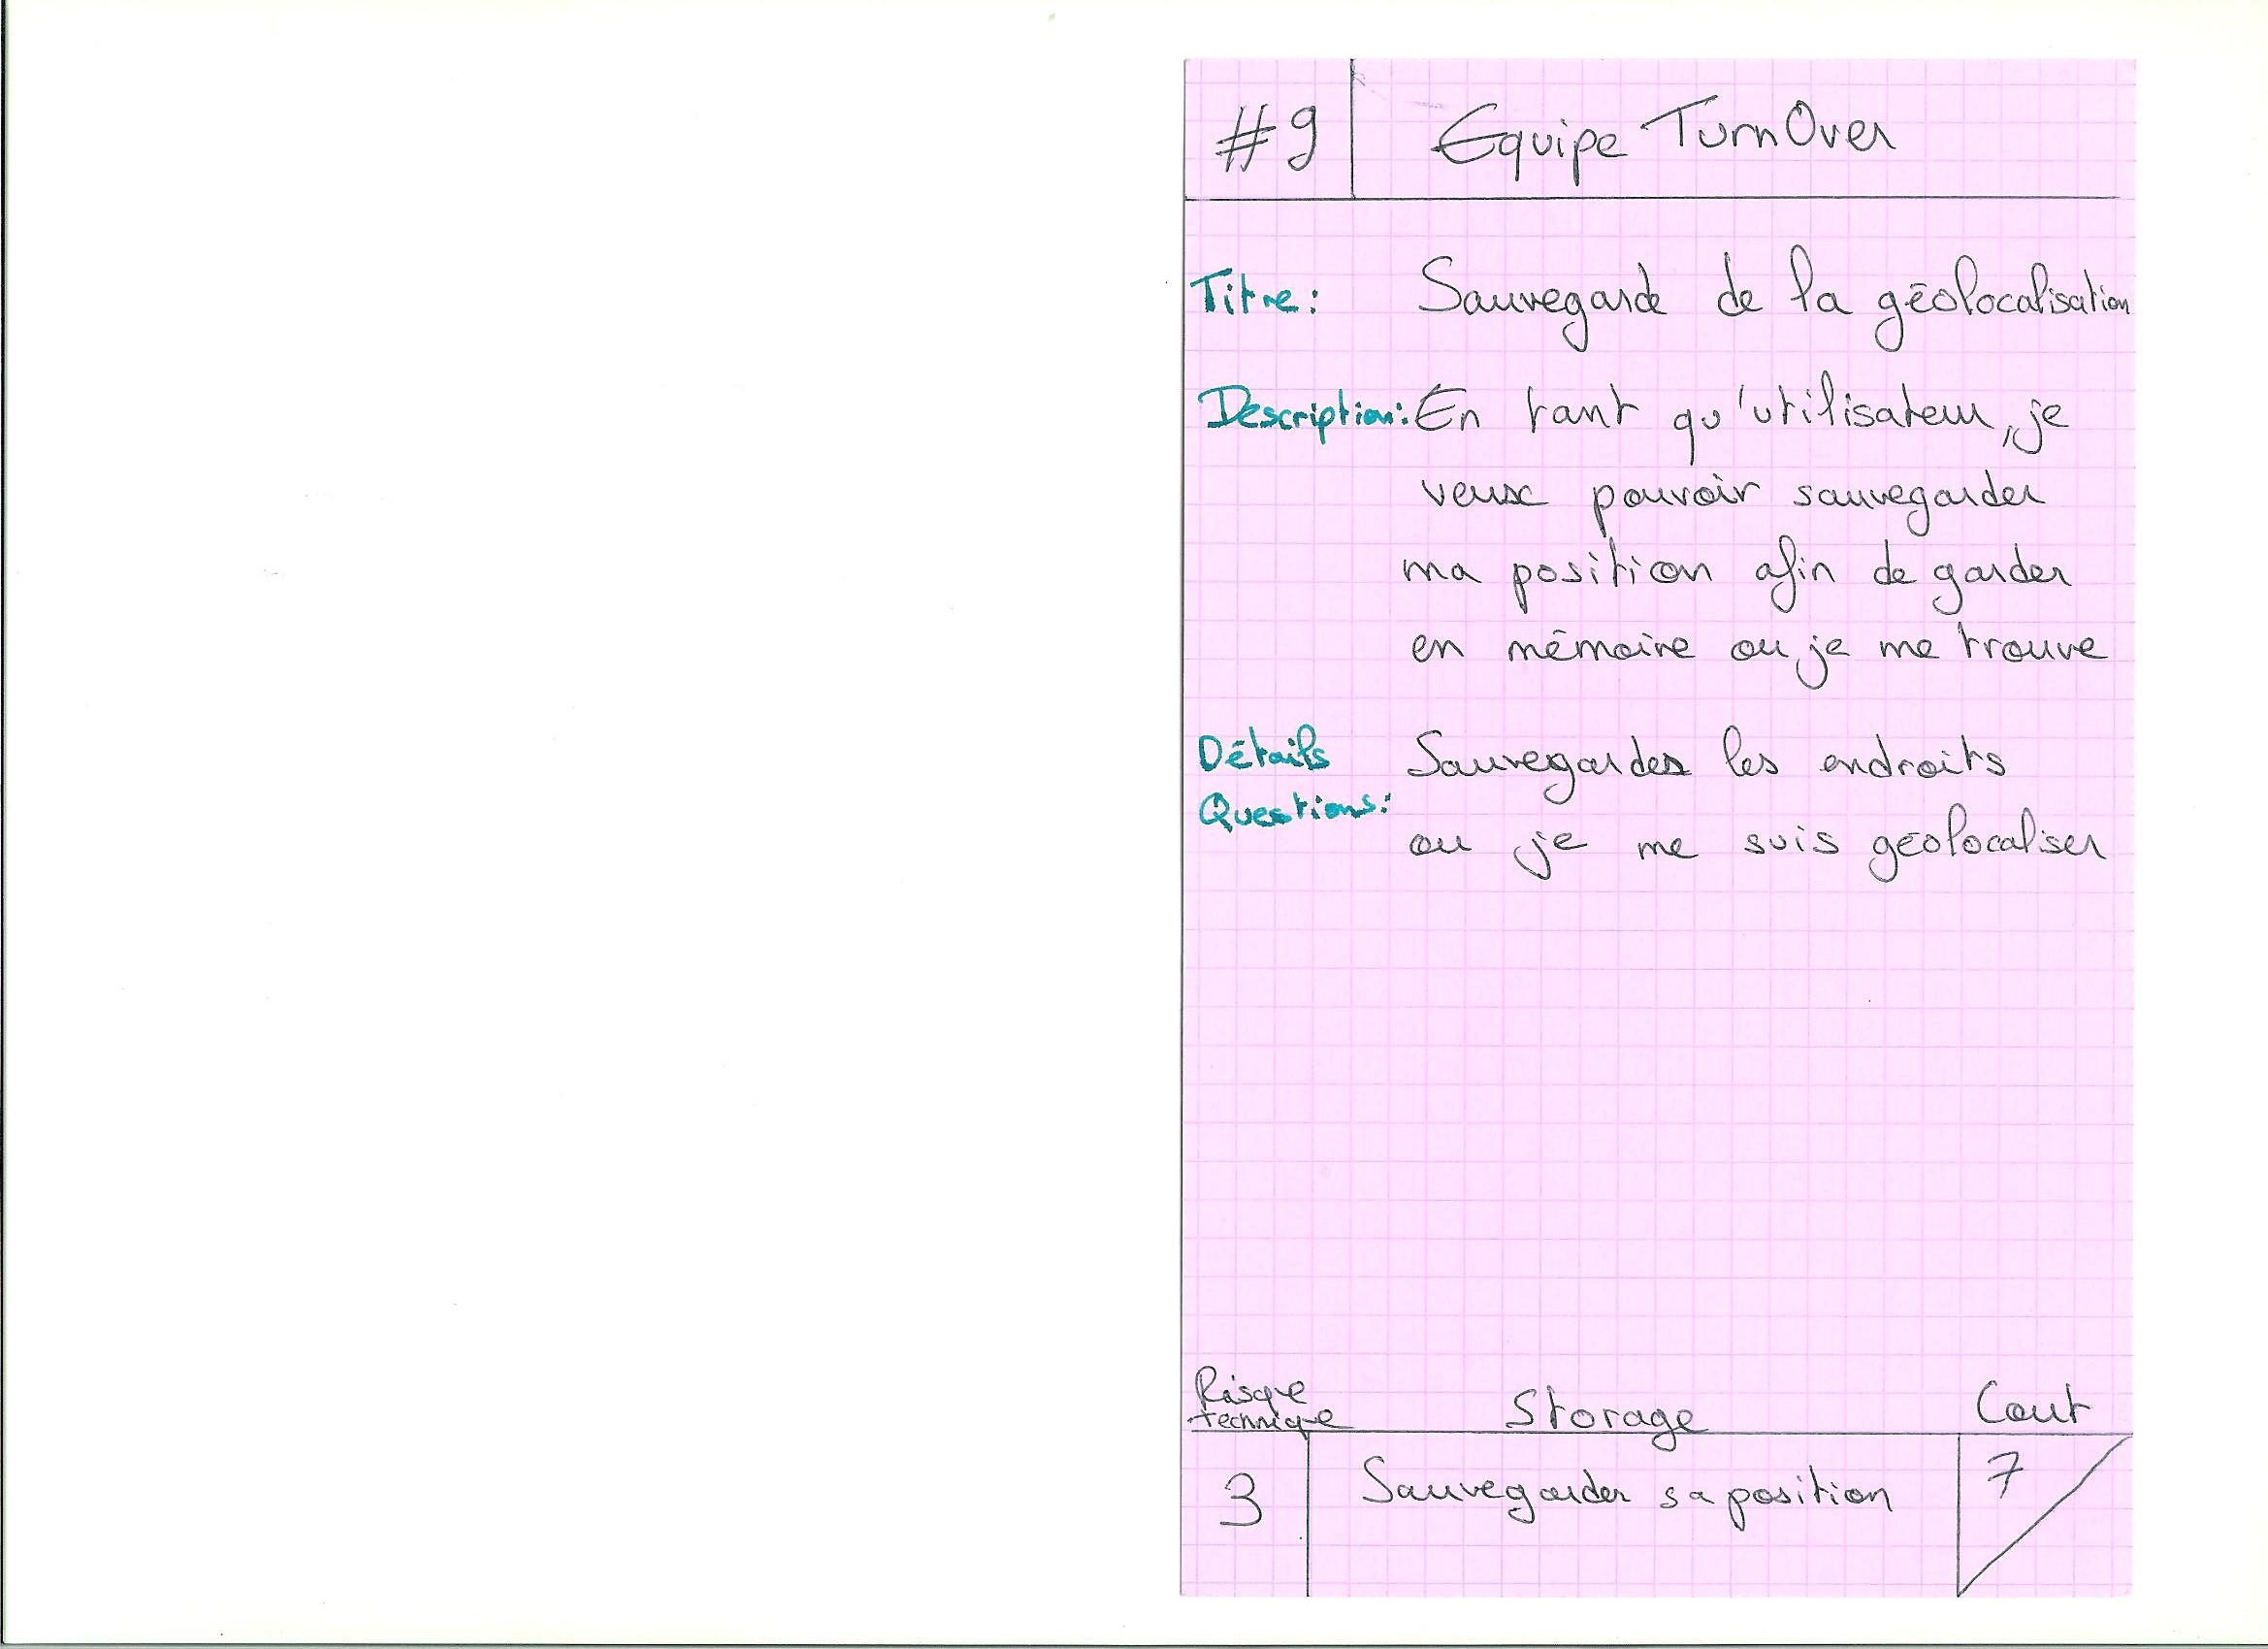 #9 Equipe TurnOver
Titre: Sauvegarde de la géolocalisation
Description: En tant qu'utilisateur, je
veux pouvoir sauvegarder
ma position afin de garder
en mémoire ou je me trouve
Détails Sauvegarder les endroits
Questions:
ou je me suis géolocaliser
Risque
technique Storage Cout
3 Sauvegarder sa position 7